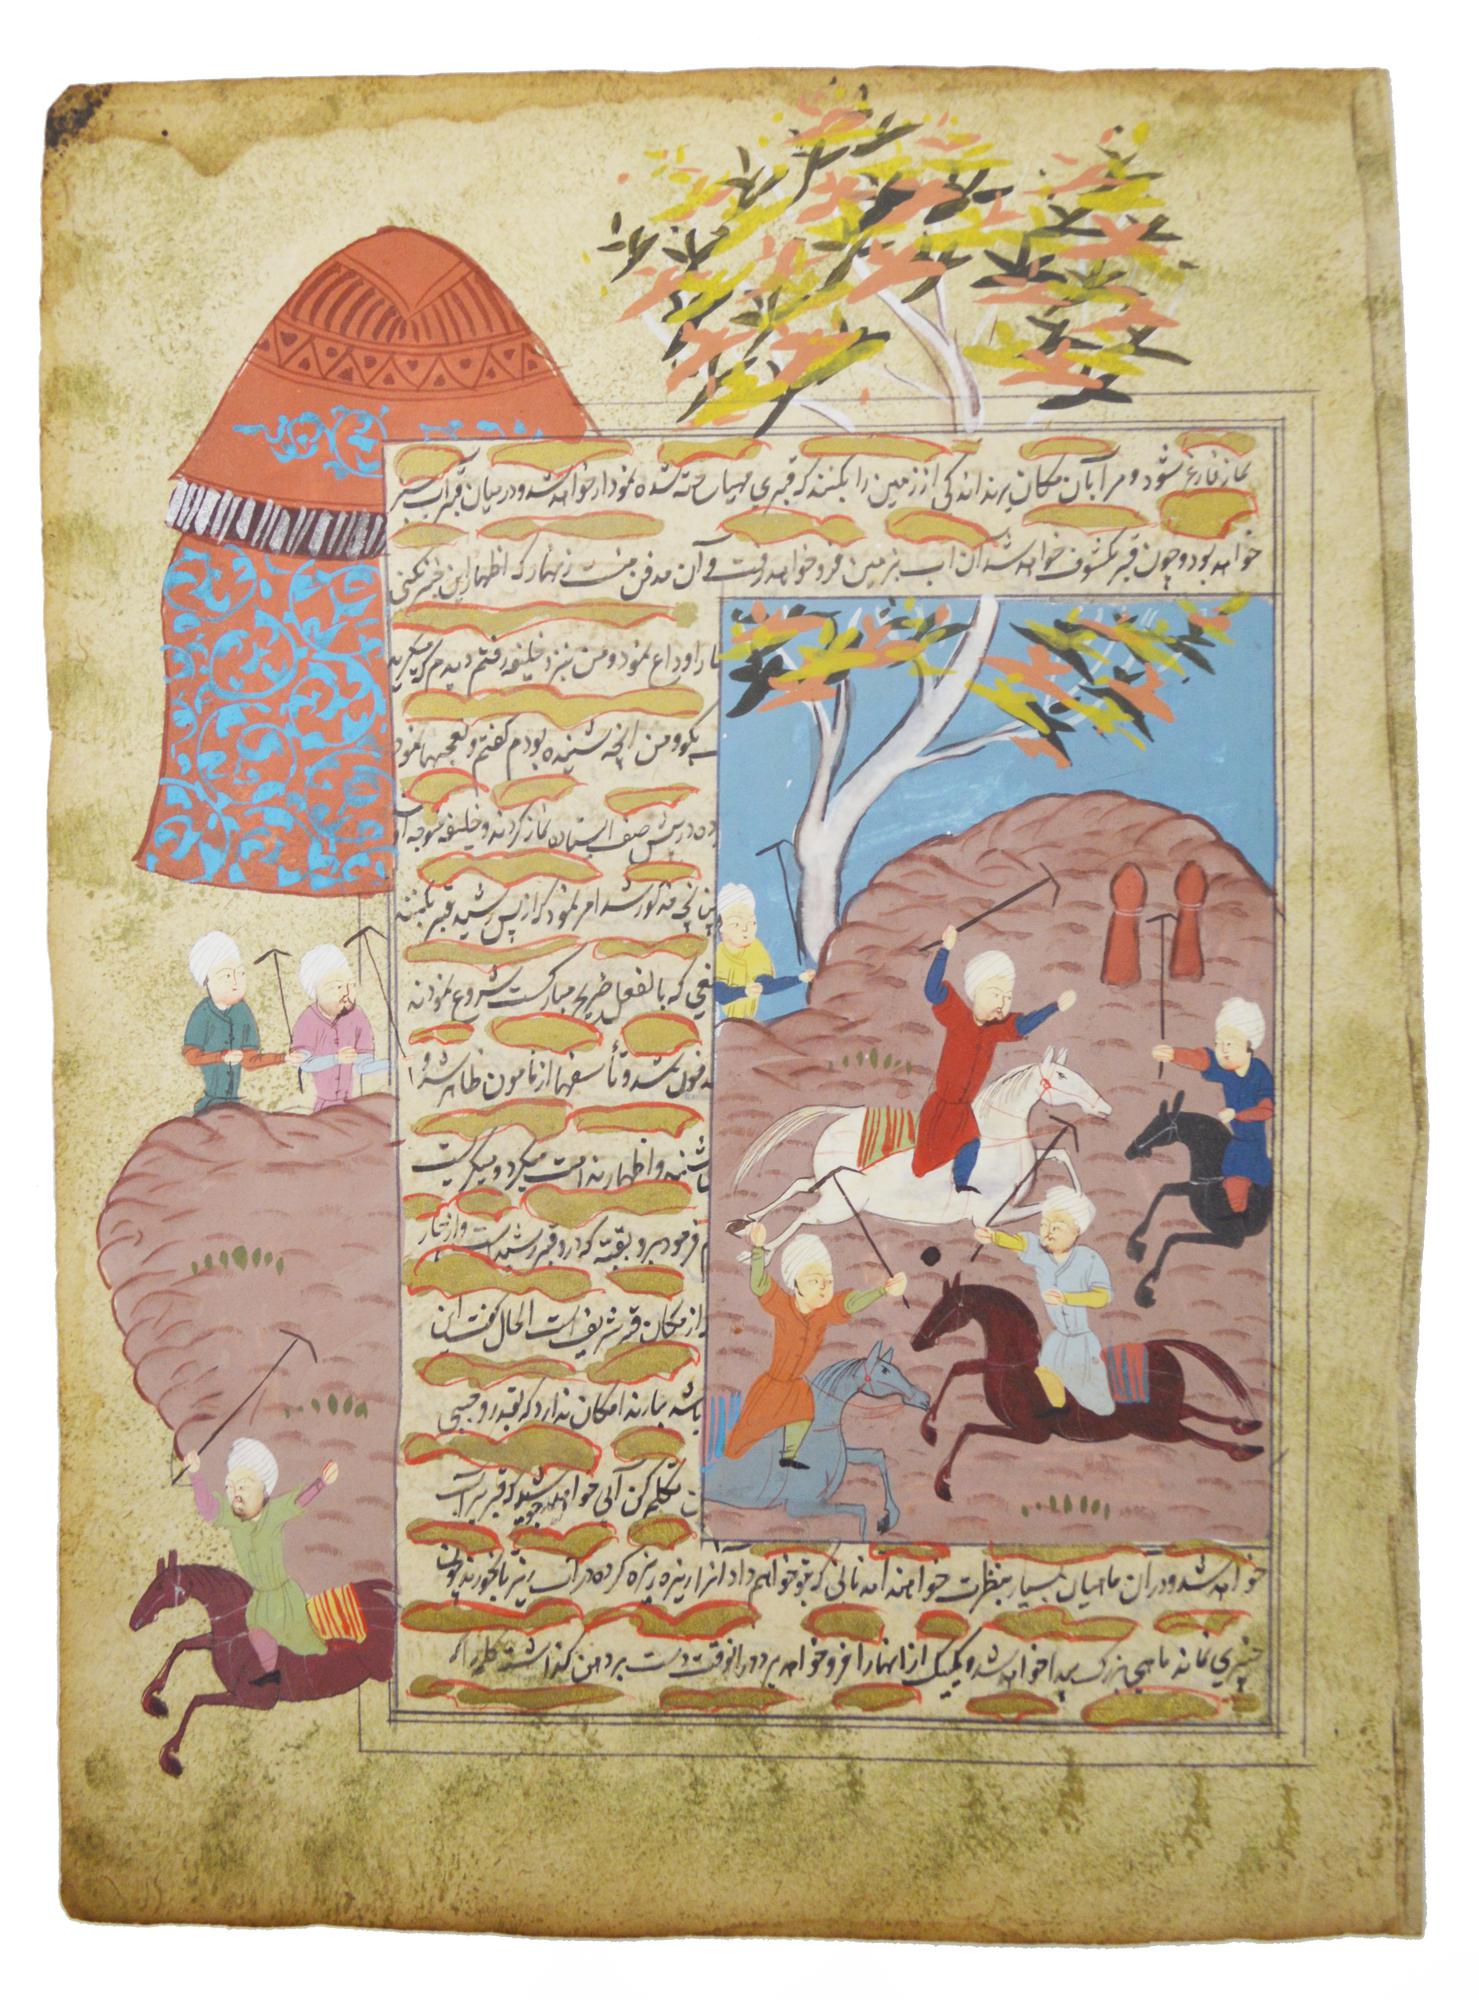 نماز فارغ شود و مرا بآن مکان برند اندکی از زمین را بکنند که قبری مهیا ساخته شده نمودار خواهد شد و در میان قبر آب سبز
خواهد بود و چون قبر مکشوف خواهد شد آن آب بزمین فرو خواهد رفت و آن مدفن منست زنهار که اظهار این خبر نکنی
را وداع نمود و من بنزد خلیفه رفتم دیدم که میگرید
بگو و من آنچه شنیده بودم گفتم و تعجبها نمود
در پیش صف ایستاده نماز کردند و خلیفه متوجه
مذکور شد امر نمود که از پس رشید قبر بکنند
که بالفعل ضریح مبارکست شروع نمودند
مدفون شد و تأسفها از مامون ظاهر شد و
و اظهار ندامت میکرد و میگریست
فرمود برو بقبه که در و قبر رشید است و از چهار
از مکان قبه شریف است الحال گفت این
باشد بیارند امکان ندارد که بقدر وجبی
تکلم کن آبی خواهد جوشید که قبر پر آب
خواهد شد و در آن ماهیان بسیار بنظرت خواهند آمد نانی که بتو خواهم داد آنرا ریزه ریزه کرده در آن ریز تا بخورند چون
چیزی نماند ماهی بزرگ پیدا خواهد شد و یک یک از آنها را فرو خواهد برد در آنوقت دست بر دهن گذاشت کلمه را که